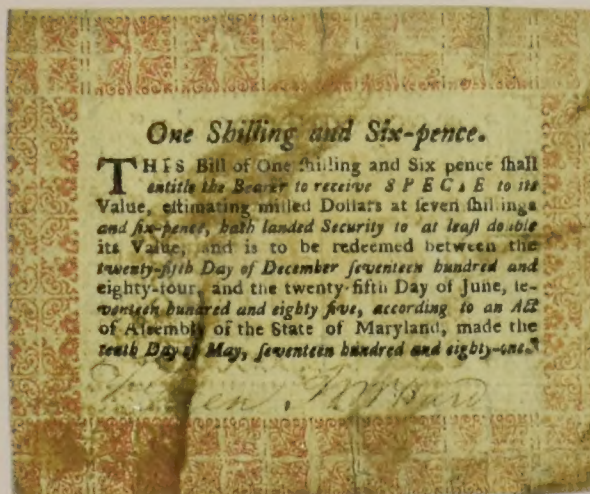 One Shilling and Six-pence.
THIS Bill of One ſhilling and Six pence ſhall
entitle the Bearer to receive SPECIE to its
Value, eſtimating milled Dollars at ſeven ſhillings
and ſix-pence, hath landed Security to at leaſt double
its Value, and is to be redeemed between the
twenty-fifth Day of December ſeventeen hundred and
eighty-four, and the twenty-fifth Day of June, ſe-
venteen hundred and eighty five, according to an Act
of Aſſembly of the State of Maryland, made the
tenth Day of May, ſeventeen hundred and eighty-one.